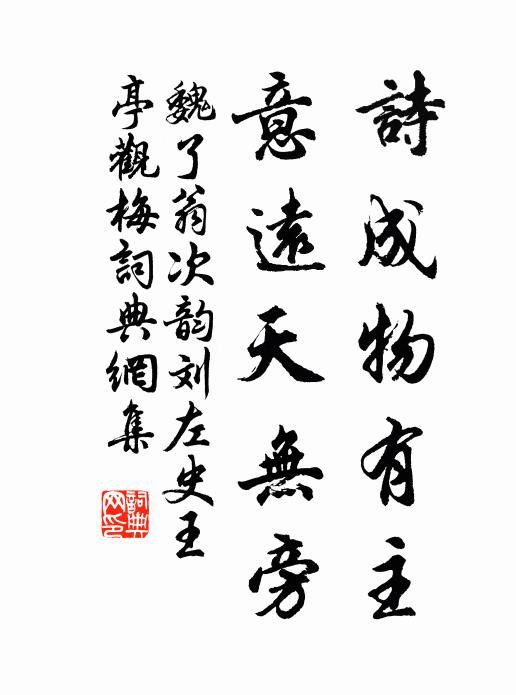 詩成物有主
意遠天無旁
魏了翁次韵刘左史王
亭觀梅詞典網集
詞典网印